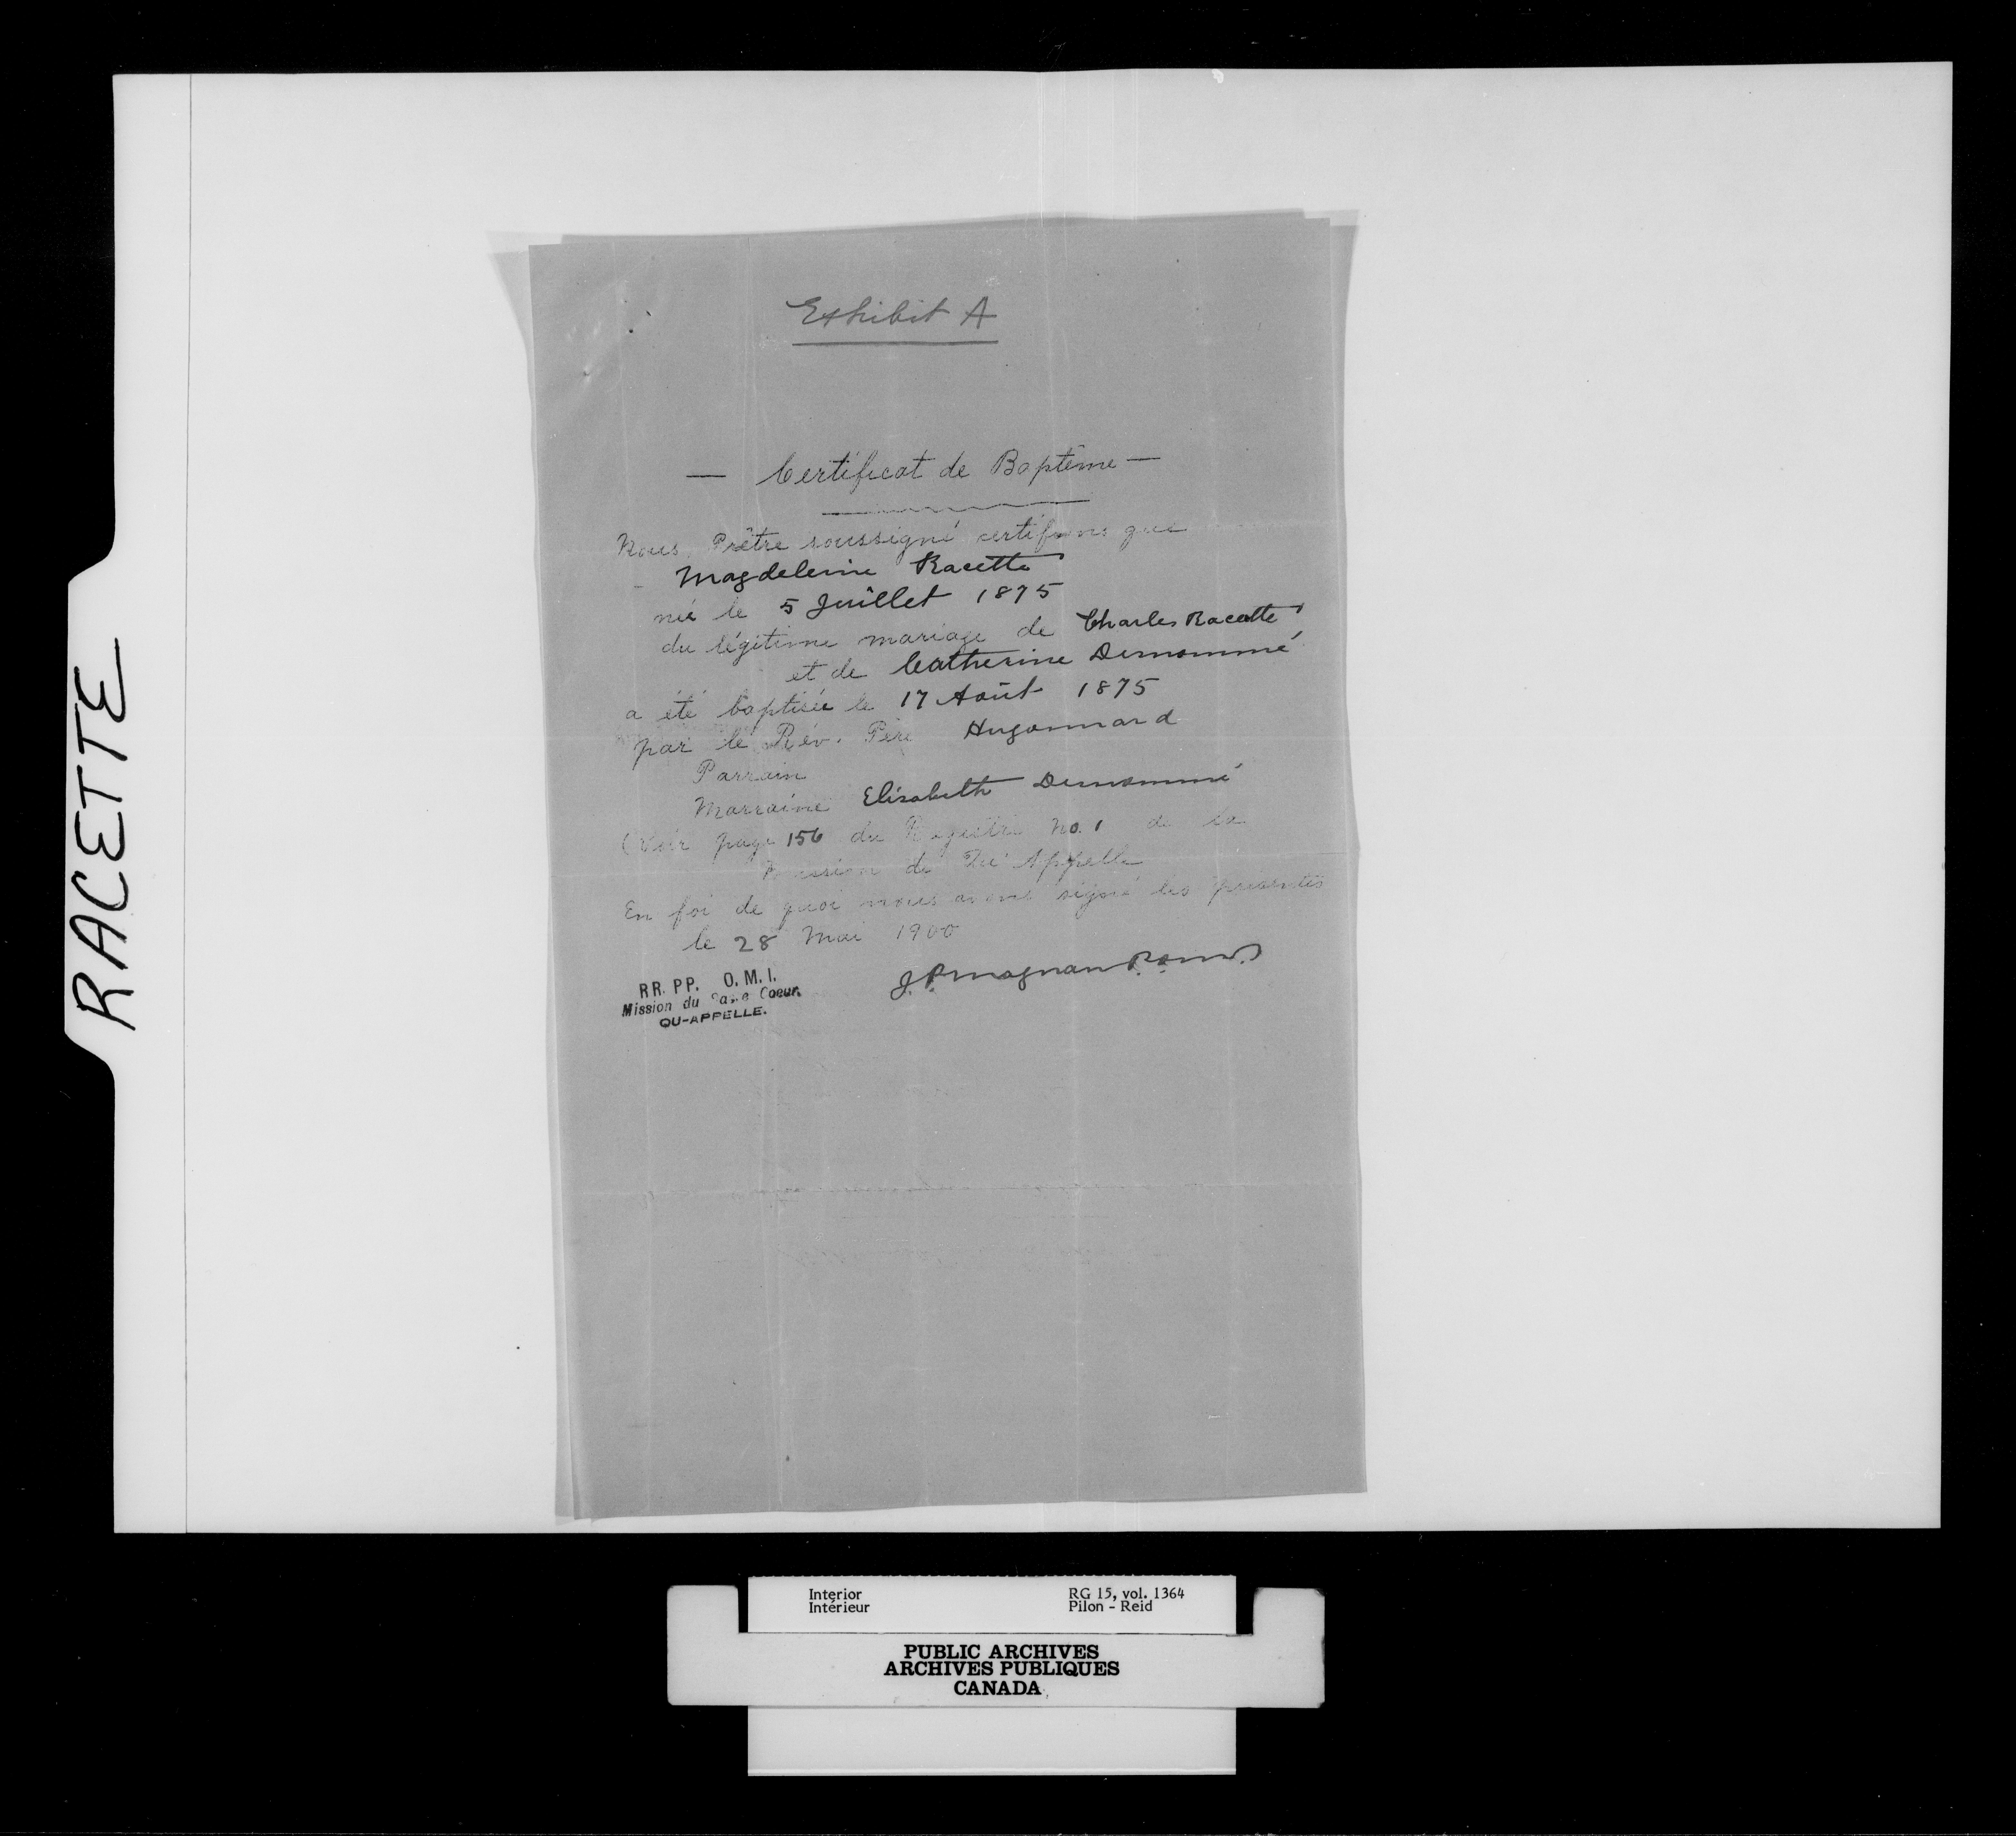 RACETTE
Exhibit A
— Certificat de Baptême —
Nous, Prêtre soussigné certifions que
Magdeleine Racette
née le 5 Juillet 1875
du légitime mariage de Charles Racette
et de Catherine Demommé
a été baptisée le 17 Août 1875
par le Rév. Père Hugonnard
Parrain
Marraine Elisabeth Demommé
(Voir page 156 du Registre No. 1 de la
Mission de Qu'Appelle
En foi de quoi nous avons signé les présentes
le 28 Mai 1900
J.P. Magnan P.O.M.I.
RR. PP. O. M. I.
Mission du Sacré Coeur.
QU-APPELLE.
Interior
Intérieur
RG 15, vol. 1364
Pilon - Reid
PUBLIC ARCHIVES
ARCHIVES PUBLIQUES
CANADA